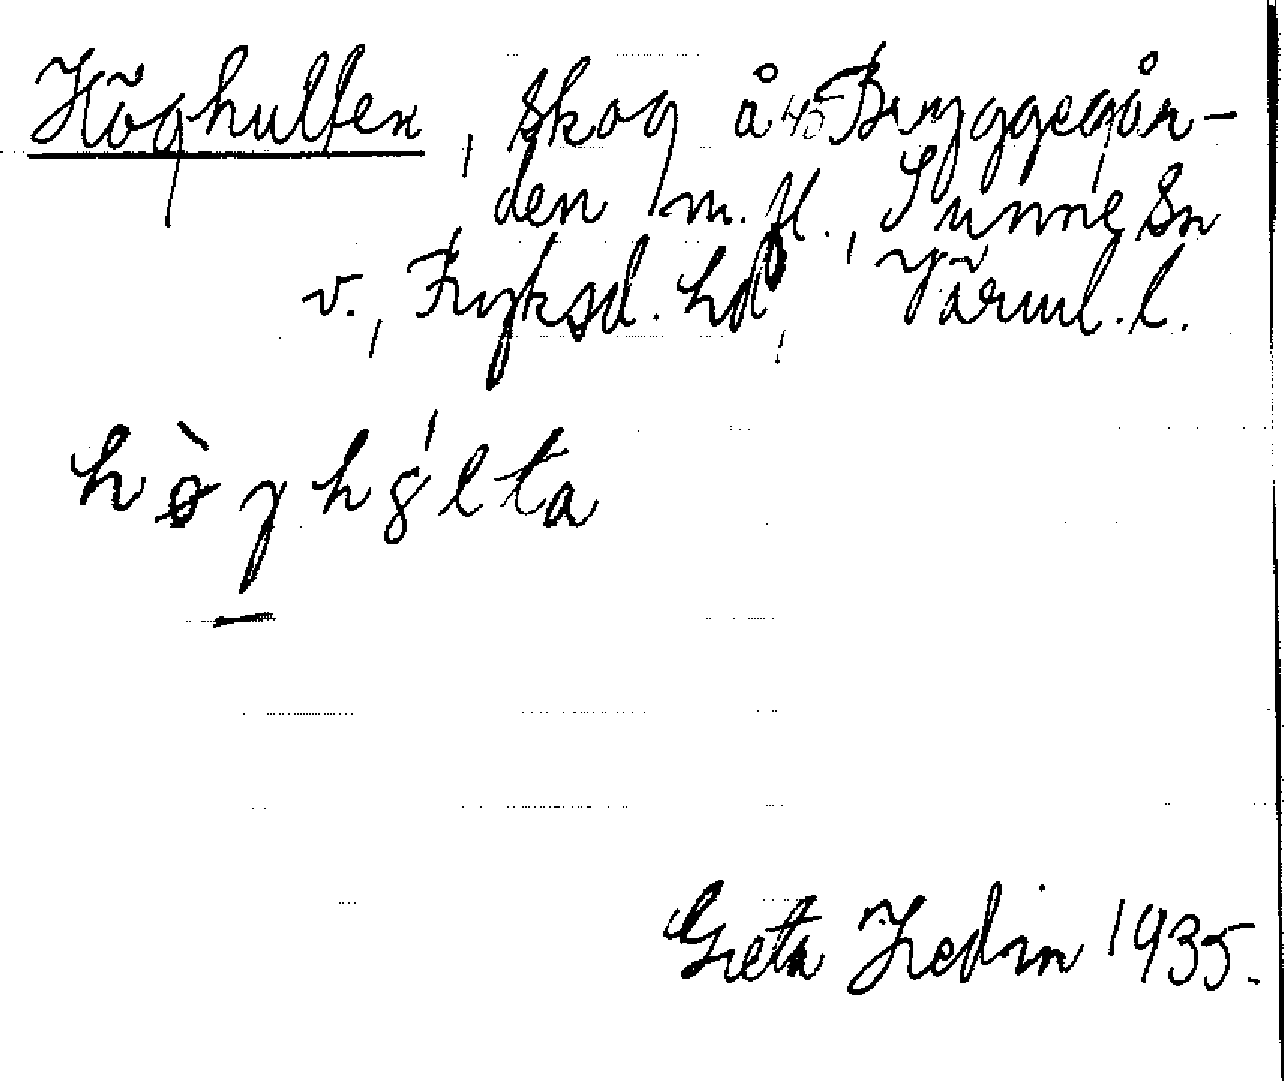 Höghulten, skog å 45 Bryggegår-
den m. fl., Sunne Sn
v., Fryksd. hd, Värml. l.
hø̀ɣh 8́lta
Greta Hedin 1935.